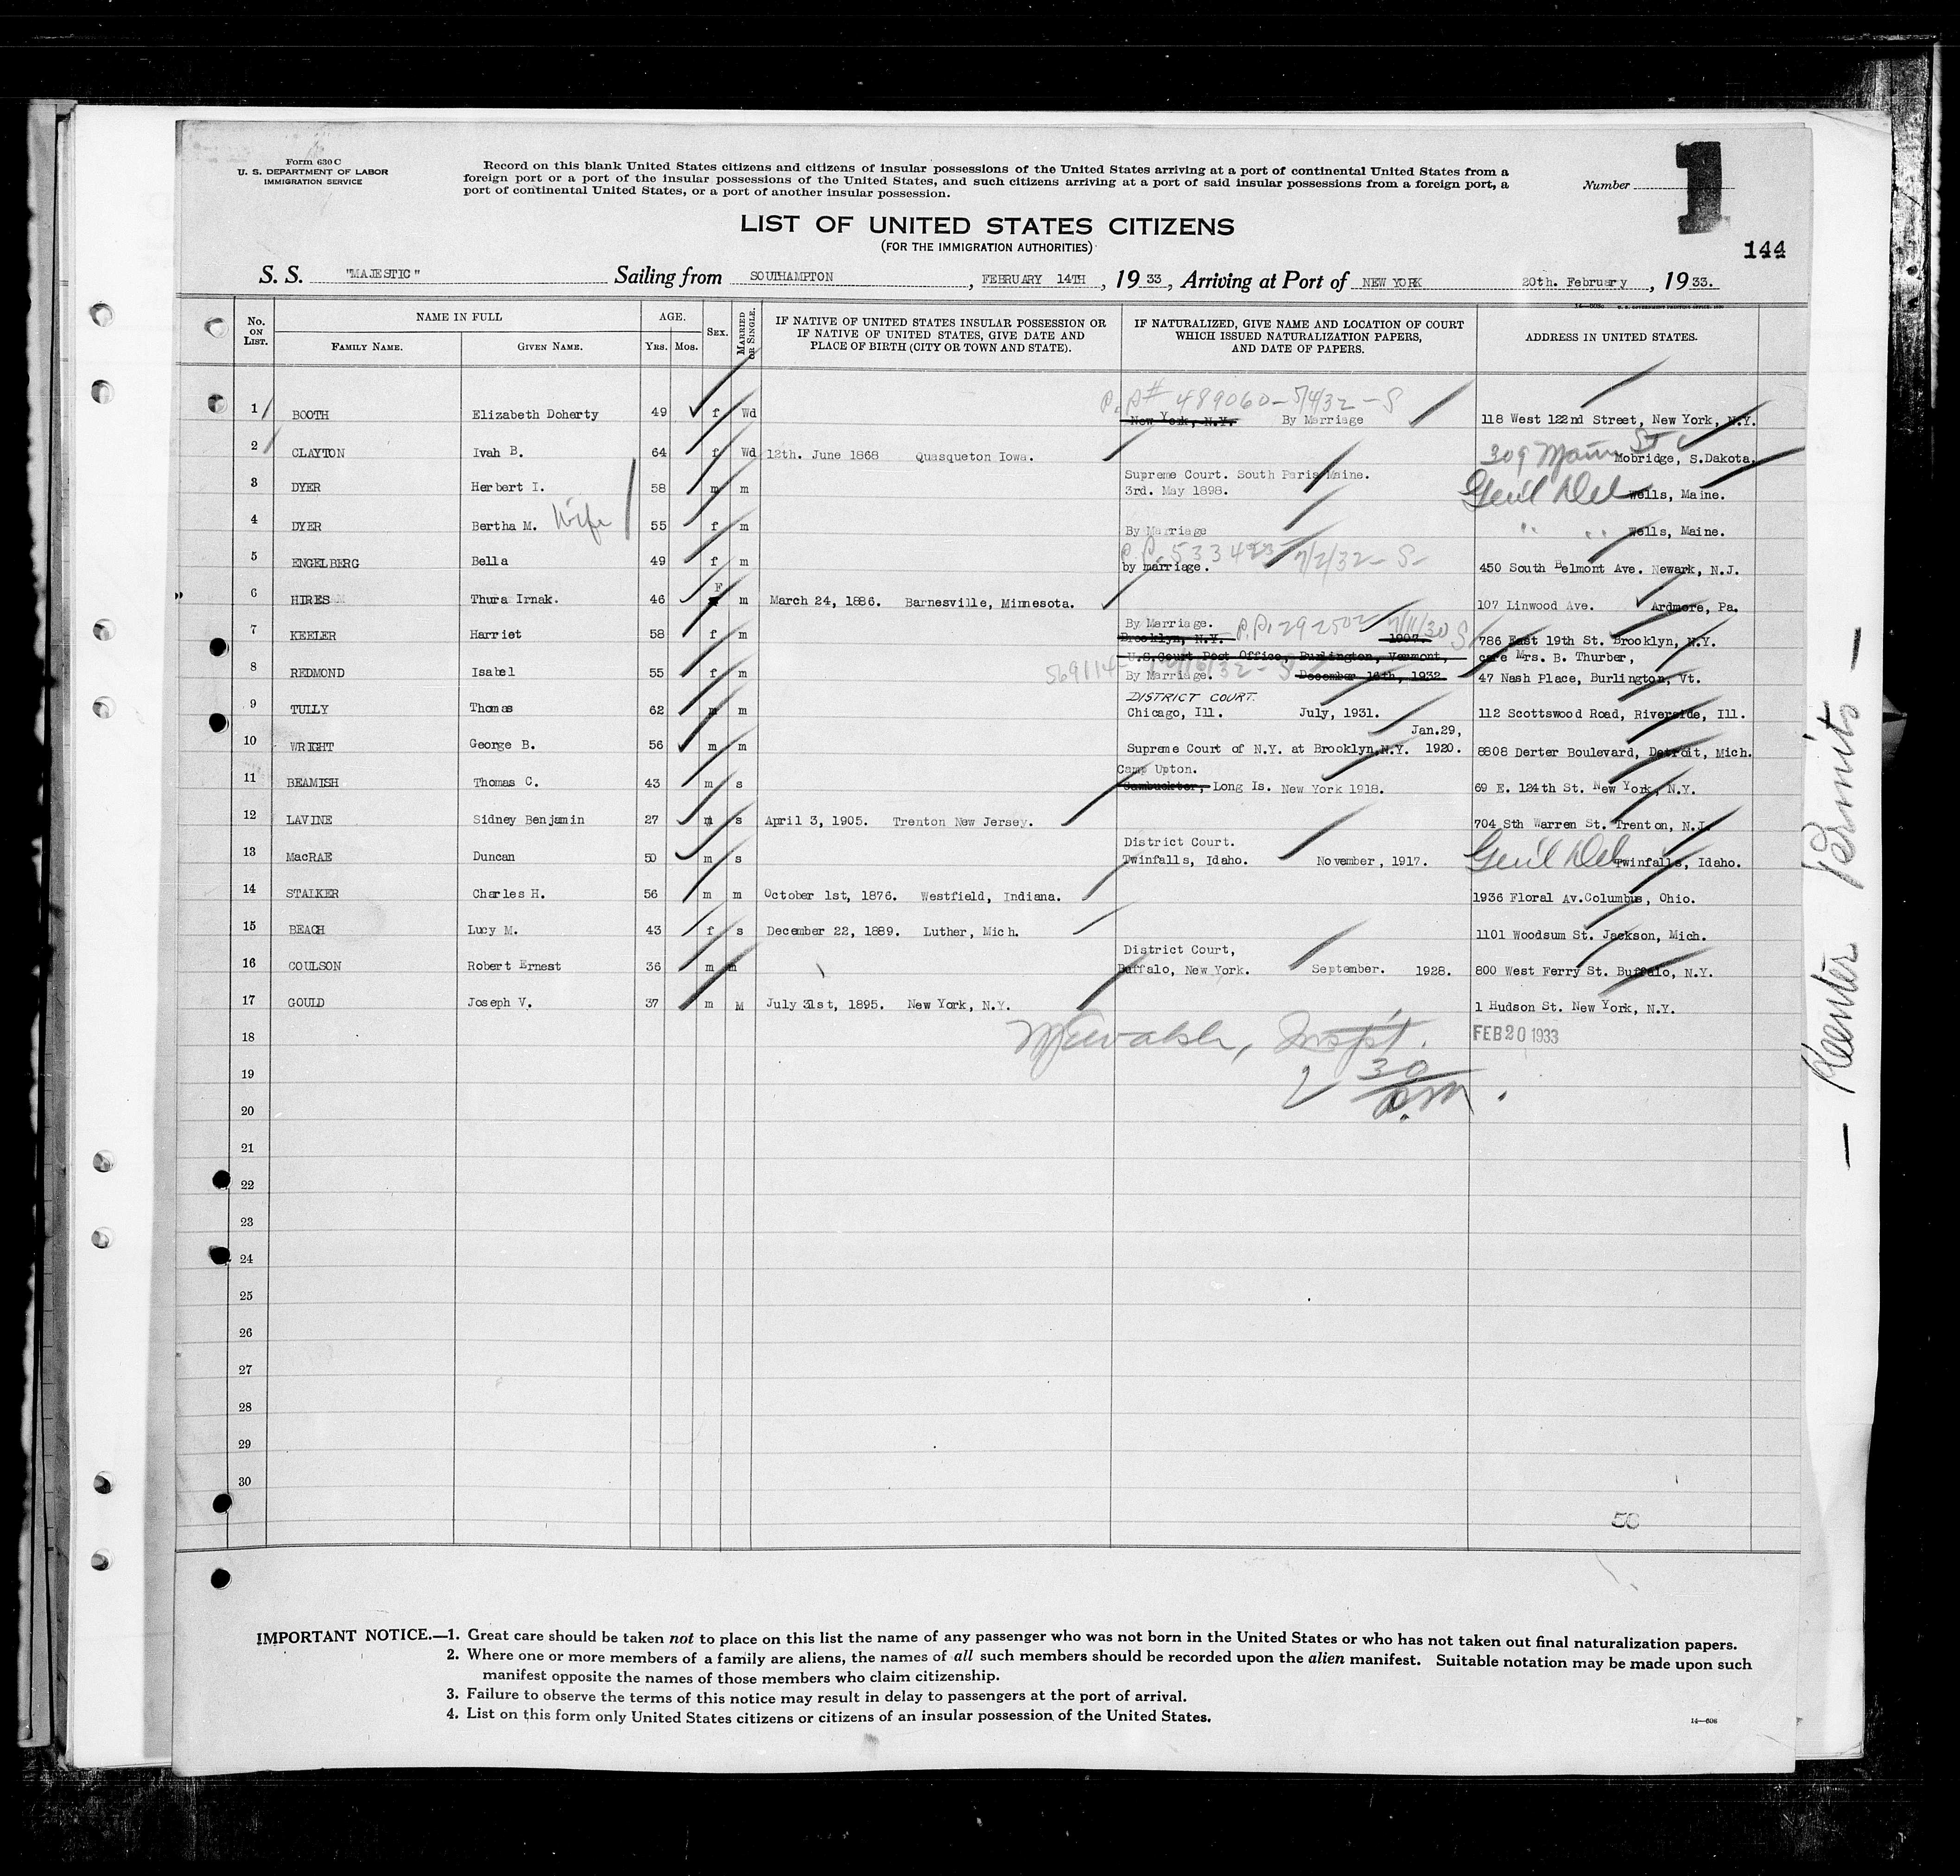 Form 630 C
U. S. DEPARTMENT OF LABOR
IMMIGRATION SERVICE
Record on this blank United States citizens and citizens of insular possessions of the United States arriving at a port of continental United States from a
foreign port or a port of the insular possessions of the United States, and such citizens arriving at a port of said insular possessions from a foreign port, a
port of continental United States, or a port of another insular possession.
Number
1
144
LIST OF UNITED STATES CITIZENS
(FOR THE IMMIGRATION AUTHORITIES)
S. S. "MAJESTIC" Sailing from SOUTHAMPTON, FEBRUARY 14TH, 19 33, Arriving at Port of NEW YORK 20th. February, 19 33.
No. ON LIST. NAME IN FULL AGE. SEX. MARRIED OR SINGLE. IF NATIVE OF UNITED STATES INSULAR POSSESSION OR IF NATIVE OF UNITED STATES, GIVE DATE AND PLACE OF BIRTH (CITY OR TOWN AND STATE). IF NATURALIZED, GIVE NAME AND LOCATION OF COURT WHICH ISSUED NATURALIZATION PAPERS, AND DATE OF PAPERS. ADDRESS IN UNITED STATES.
FAMILY NAME. GIVEN NAME. YRS. MOS.
P. P# 489060 - 5/4/32 - S
1 BOOTH Elizabeth Doherty 49 f Wd New York, N.Y. By Marriage 118 West 122nd Street, New York, N.Y.
2 CLAYTON Ivah B. 64 f Wd 12th. June 1868 Quasqueton Iowa. 309 Main St Mobridge, S.Dakota.
Supreme Court. South Paris Maine.
3 DYER Herbert I. 58 m m 3rd. May 1898. Gen'l Del Wells, Maine.
4 DYER Bertha M. Wife 55 f m By Marriage " " Wells, Maine.
P. P. 533423 7/2/32 - S -
5 ENGELBERG Bella 49 f m by marriage. 450 South Belmont Ave. Newark, N.J.
6 HIRES Thura Irnak. 46 F m March 24, 1886. Barnesville, Minnesota. 107 Linwood Ave. Ardmore, Pa.
By Marriage.
7 KEELER Harriet 58 f m Brooklyn, N.Y. P.P. 292502 7/11/30 S 1907. 786 East 19th St. Brooklyn, N.Y.
U.S.Court Post Office, Burlington, Vermont, care Mrs. B. Thurber,
8 REDMOND Isabel 55 f m 569114 By Marriage. December 16th, 1932 47 Nash Place, Burlington, Vt.
DISTRICT COURT.
9 TULLY Thomas 62 m m Chicago, Ill. July, 1931. 112 Scottswood Road, Riverside, Ill.
Jan.29,
10 WRIGHT George B. 56 m m Supreme Court of N.Y. at Brooklyn,N.Y. 1920. 8808 Derter Boulevard, Detroit, Mich.
Camp Upton.
11 BEAMISH Thomas C. 43 m s Long Is. New York 1918. 69 E. 124th St. New York, N.Y.
12 LAVINE Sidney Benjamin 27 m s April 3, 1905. Trenton New Jersey. 704 Sth Warren St. Trenton, N.J.
District Court.
13 MacRAE Duncan 50 m s Twinfalls, Idaho. November, 1917. Gen'l Del Twinfalls, Idaho.
14 STALKER Charles H. 56 m m October 1st, 1876. Westfield, Indiana. 1936 Floral Av.Columbus, Ohio.
15 BEACH Lucy M. 43 f s December 22, 1889. Luther, Mich. 1101 Woodsum St. Jackson, Mich.
District Court,
16 COULSON Robert Ernest 36 m m Buffalo, New York. September. 1928. 800 West Ferry St. Buffalo, N.Y.
17 GOULD Joseph V. 37 m M July 31st, 1895. New York, N.Y. 1 Hudson St. New York, N.Y.
18 Insp't. FEB 20 1933
19 2 30
20 P.M.
21
22
23
24
25
26
27
28
29
30
56
Permits
IMPORTANT NOTICE.—1. Great care should be taken not to place on this list the name of any passenger who was not born in the United States or who has not taken out final naturalization papers.
2. Where one or more members of a family are aliens, the names of all such members should be recorded upon the alien manifest. Suitable notation may be made upon such
manifest opposite the names of those members who claim citizenship.
3. Failure to observe the terms of this notice may result in delay to passengers at the port of arrival.
4. List on this form only United States citizens or citizens of an insular possession of the United States.
14—606